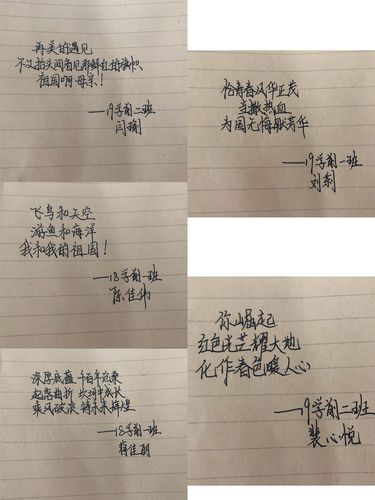 再美的遇见
不及抬头间看见那鲜红的旗帜
祖国啊母亲!
——19学前二班
闫瑜
飞鸟和天空
游鱼和海洋
我和我的祖国!
——18学前一班
陈佳伟
深厚底蕴 千百年沉聚
起落曲折 坎坷中成长
乘风破浪 铸未来辉煌
——18学前一班
蒋佳朝
恰青春风华正茂
当撒热血
为国无悔献芳华
——19学前一班
刘莉
你山崛起
红色光芒耀大地
化作春色暖人心
——19学前二班
裴心悦